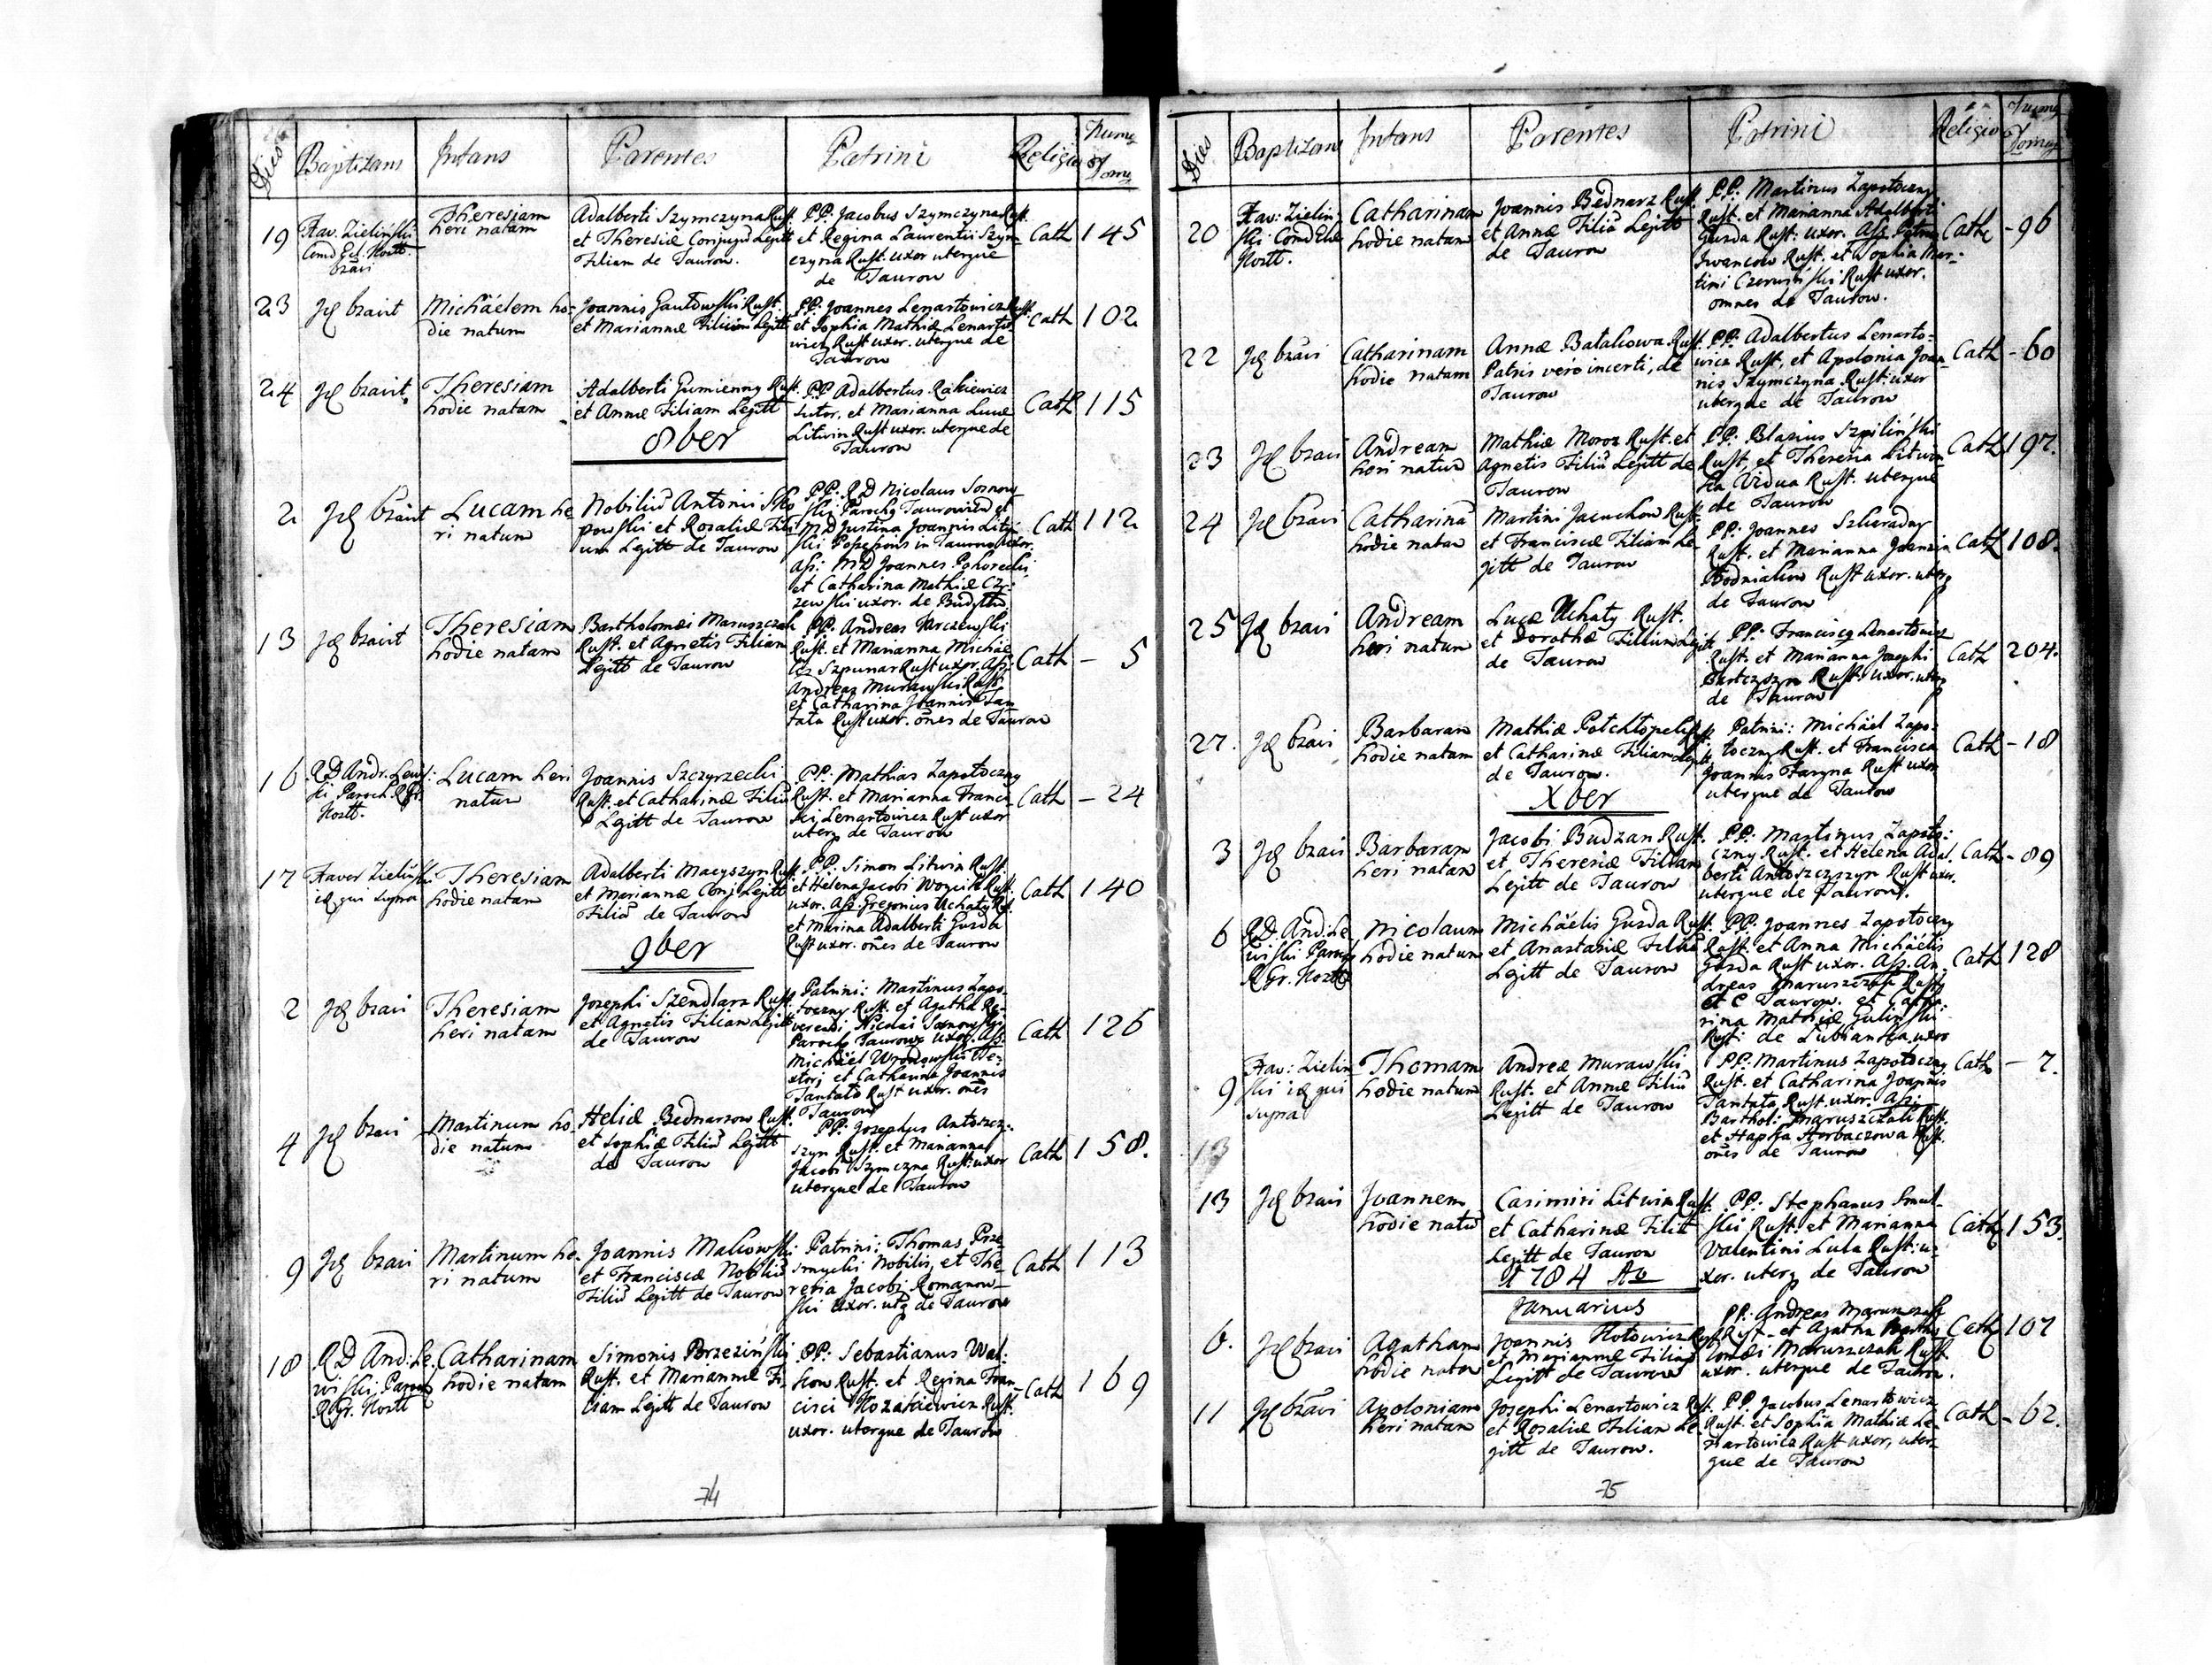 Dies Baptizans Infans Parentes Patrini Religio Numę Domę
19 Xav. Zieliński Comd Ecl. Nostt. bzavi
Theresiam heri natam
Adalberti Szymczyna Rust.
et Theresiæ Conjugū Legitt
Filiam de Taurow.
PP: Jacobus Szymczyna Rust.
et Regina Laurentii Szym
czyna Rust. uxor uterque
de Taurow
Cath 145
23 Jd bzavit
Michäelem ho-
die natum
Joannis Gautowski Rust.
et Mariannæ Filium Legitt
PP: Joannes Lenartowicz Rust.
et Sophia Mathiæ Lenarto
wicz Rust uxor. uterque de
Taurow
Cath 102
24 Jd bzavit
Theresiam
hodie natam
Adalberti Gumienny Rust.
et Annæ Filiam Legitt
PP Adalbertus Rakiewicz
Sutor. et Marianna Lucæ
Litwin Rust uxor. uterque de
Taurow
Cath 115
8ber
2 Jd bzavit
Lucam he
ri natum
Nobiliū Antonii Sko
powski et Rosaliæ Fili
um Legitt de Taurow
PP: RD Nicolaus Sosnow
ski Parochę Taurowien et
MD Justina Joannis Lityn
ski Possessoris in Taurow uxor.
Ass: MD Joannes Pohorecki
et Catharina Mathiæ Cz
zewski uxor. de
Cath 112
13 Jd bzavit
Theresiam
hodie natam
Bartholomæi Maruszczak
Rust. et Agnetis Filiam
Legitt de Taurow
PP. Andreas Warczewski
Rust. et Marianna Michäe
lis Szpunar Rust uxor. Ass:
Andreas Murawski Rust.
et Catharina Joannis Tan
tata Rust uxor. ōnes de Taurow
Cath - 5
16 RD Andr. Lewi
ski Paroch. RGr.
Nostt.
Lucam heri
natum
Joannis Szczyrzecki
Rust. et Catharinæ Filiū
Legitt de Taurow
PP: Mathias Zapotoczny
Rust. et Marianna Franci
sci Lenartowicz Rust uxor
uterq de Taurow
Cath - 24
17 Xaver Zieliński
id qui supra
Theresiam
hodie natam
Adalberti Macyszyn Rust.
et Mariannæ Conj Legitt
Filiā de Taurow
PP. Simon Litwin Rust.
et Helena Jacobi Woycik Rust.
uxor. Ass. Gregorius Uchaty Rust.
et Marina Adalberti Gusda
Rust uxor. ōnes de Taurow
Cath 140
9ber
2 Jd bzavi
Theresiam
heri natam
Josephi Szendlarz Rust.
et Agnetis Filiam Legitt
de Taurow
Patrini: Martinus Zapo-
toczny Rust. et Agatha Re-
verendi Nicolai Sosnowski
Parochi Taurow uxor. Ass.
Michäel
et Catharina Joannis
Tantata Rust uxor. ōnes
Taurow
Cath 126
4 Jd bzavi
Martinum ho-
die natum
Heliæ Bednarzow Rust.
et Sophiæ Filiū Legitt
de Taurow
PP: Josephus Antoszcz-
szyn Rust. et Marianna
Jacobi Szymczyna Rust: uxor
uterque de Taurow
Cath 158.
9 Jd bzavi
Martinum he-
ri natum
Joannis Malcowski
et Franciscæ Nobiliū
Filiū Legitt de Taurow
Patrini: Thomas Prze
smycki Nobilis, et The-
resia Jacobi Romanow-
ski uxor. utq de Taurow
Cath 113
18 RD And: Le.
wiski Paroch
RGr. Nostt
Catharinam
hodie natam
Simonis Brzeziński
Rust. et Mariannæ Fi-
liam Legitt de Taurow
PP: Sebastianus Wal-
kow Rust. et Regina Fran-
cisci Kozakiewicz Rust.
uxor. uterque de Taurow
Cath 169
74
Dies Baptizans Infans Parentes Patrini Religio Numę Domę
20 Xav: Zielin
ski Comd Ecl
Nostt.
Catharinam
hodie natam
Joannis Bednarz Rust.
et Annæ Filiā Legitt
de Taurow
PP: Martinus Zapotoczny
Rust. et Marianna Adalberti
Gusda Rust: uxor. Ass. Petrus
Iwancow Rust. et Sophia Mar-
tini Czerwiński Rust uxor.
omnes de Taurow.
Cath - 96
22 Jd bzavi
Catharinam
hodie natam
Annæ Batakowa Rust.
Patris vero incerti, de
Taurow
PP: Adalbertus Lenarto-
wicz Rust, et Apolonia Joan
nis Szymczyna Rust: uxor
uterque de Taurow
Cath - 60
23 Jd bzavi
Andream
heri natū
Mathiæ Moroz Rust. et
Agnetis Filiū Legitt de
Taurow
PP: Blasius Szpiliński
Rust, et Theresia Litwin
ka Vidua Rust. uterque
de Taurow
Cath 197.
24 Jd bzavi
Catharinā
hodie natam
Martini Jacuchow Rust.
et Franciscæ Filiam Le-
gitt de Taurow
PP: Joannes Szkeradny
Rust. et Marianna Joannis
Bodniakow Rust uxor. uterq
de Taurow
Cath 108.
25 Jd bzavi
Andream
heri natum
Lucæ Uchaty Rust.
et Dorothæ Filium Legitt
de Taurow
PP: Franciscę Lenartowicz
Rust. et Marianna Josephi
Bartczszyn Rust. uxor. uterq
de Taurow
Cath 204.
27. Jd bzavi
Barbaram
hodie natam
Mathiæ
et Catharinæ Filiam Legitt
de Taurow.
Patrini: Michäel Zapo-
toczny Rust. et Francisca
Joannis Faryna Rust uxor
uterque de Taurow
Cath - 18
Xber
3 Jd bzavi
Barbaram
heri natam
Jacobi Budzan Rust.
et Theresiæ Filiam
Legitt de Taurow
PP: Martinus Zapoto-
czny Rust. et Helena Adal-
berti Antoszczszyn Rust uxor.
uterque de Taurow.
Cath - 89
6 RD. And: Le
wiski Paroch
RGr. Nostt
Nicolaum
hodie natum
Michäelis Gusda Rust.
et Anastasiæ Filiū
Legitt de Taurow
PP: Joannes Zapotoczny
Rust. et Anna Michäelis
Gusda Rust uxor. Ass. An-
dreas Maruszczak Rust
et C Taurow. et Catha-
rina Mathiæ Gulinski
Rust: de Lubianka uxor
Cath 128
9 Xav: Zielin
ski id qui
supra
Thomam
hodie natum
Andreæ Murawski
Rust. et Annæ Filiū
Legitt de Taurow
PP: Martinus Zapotoczny
Rust. et Catharina Joannis
Tantata Rust. uxor. Ass:
Barthol: Maruszczak Rust.
et Hapka Horbaczowa Rust.
ōnes de Taurow
Cath - 7.
13
13 Jd bzavi
Joannem
hodie natū
Casimiri Litwin Rust.
et Catharinæ Filiū
Legitt de Taurow
PP: Stephanus Smul-
ski Rust. et Marianna
Valentini Lula Rust: u-
xor. uterq de Taurow
Cath 153.
1784 Ao
Januarius
6. Jd bzavi
Agatham
hodie natam
Joannis Hotowicz Rust.
et Mariannæ Filiam
Legitt de Taurow
PP. Andreas Maruszczak
Rust. et Agatha Bartho
lomæi Maruszczak Rust
uxor. uterque de Taurow.
Cath 107
11 Jd bzavi
Apoloniam
heri natam
Josephi Lenartowicz Rust.
et Rosaliæ Filiam Le-
gitt de Taurow.
PP. Jacobus Lenartowicz
Rust. et Sophia Mathiæ Le-
nartowicz Rust uxor, uter-
que de Taurow
Cath - 62.
75